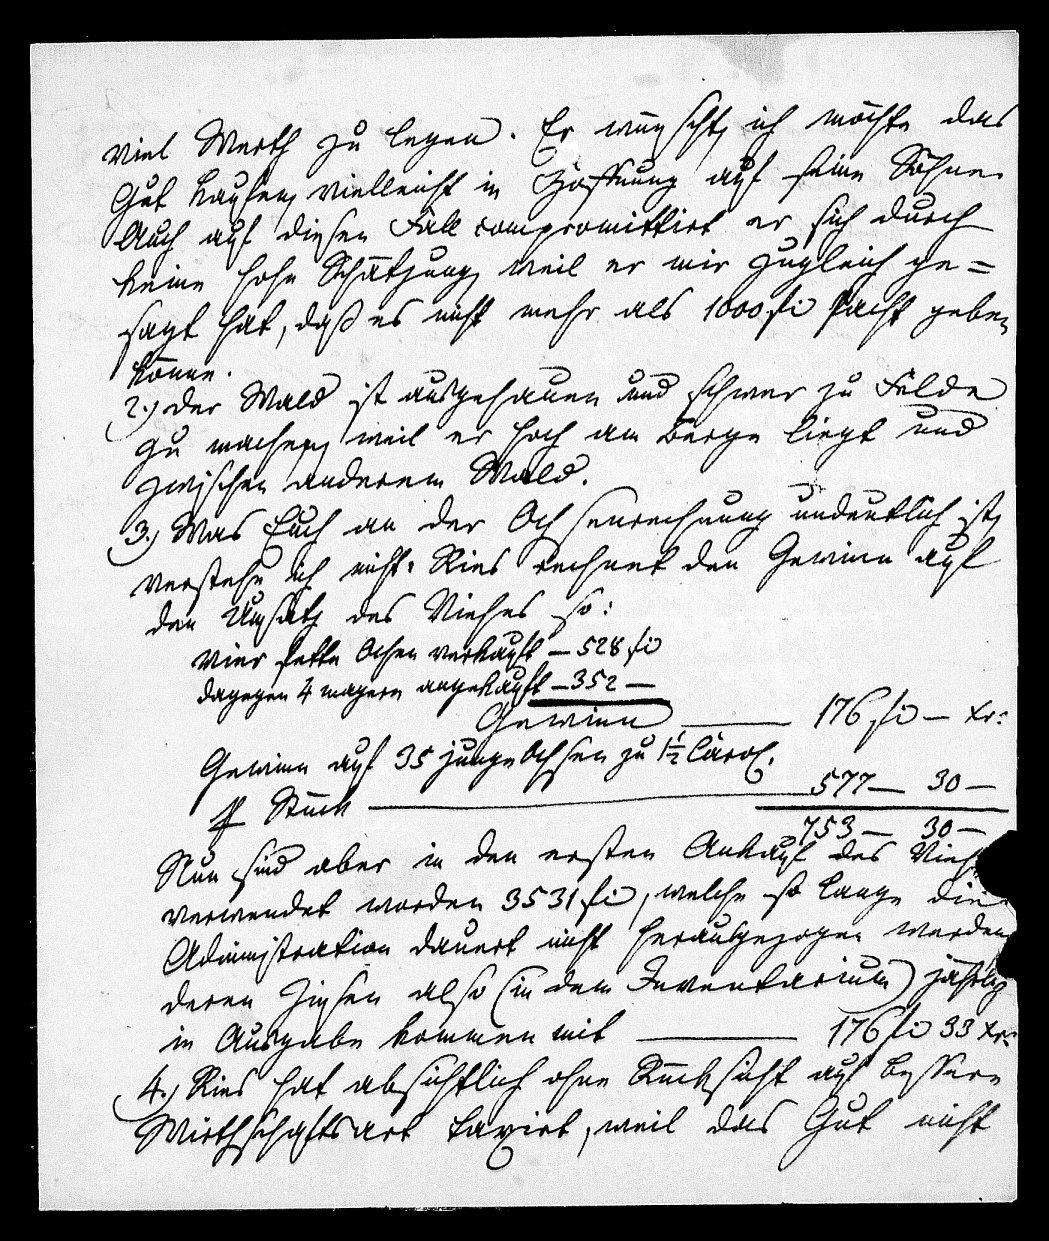 viel Werth zu legen. Er wünscht, ich möchte das
Gut kaufen, vielleicht in Hoffnung auf seine Söhne.
Auch auf diesen Fall compromittirt er sich durch
keine hohe Schätzung, weil er mir zugleich ge=
sagt hat, daß es nicht mehr als 1000 fl Pacht geben
könne.
2.) Der Wald ist ausgehauen und schwer zu Felde
zu machen, weil er hoch am Berge liegt und
zwischen anderem Wald.
3.) Was Euch an der Ochsenrechnung undeutlich ist,
verstehe ich nicht. Ries rechnet den Gewinn auf
den Umsatz des Viehes so:
Vier fette Ochsen verkauft — 528 fl
dagegen 4 magere angekauft — 352 —
Gewinn — 176 fl — xr:
Gewinn auf 35 junge Ochsen zu 1½ Carol.
pr Stück — 577 — 30 —
753 — 30 —
Nun sind aber in den ersten Ankauf des Viehs
verwendet worden 3531 fl, welche so lange die
Administration dauert nicht herausgezogen werden,
deren Zinsen also (in dem Inventarium) jährlich
in Ausgabe kommen mit — 176 fl 33 xr:
4.) Ries hat absichtlich ohne Rücksicht auf bessere
Wirthschaftsart taxirt, weil das Gut nicht